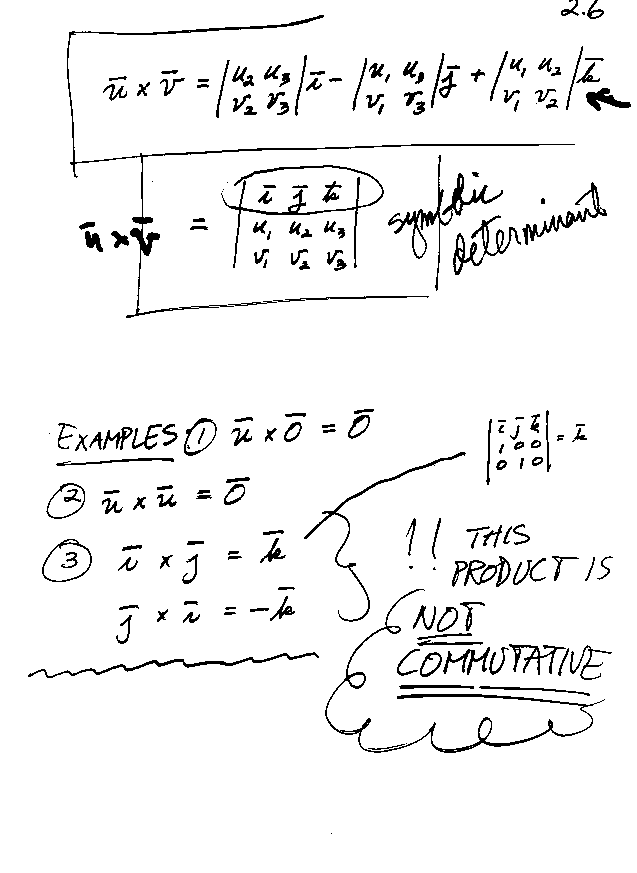 2.6
ū × v̄ = |u₂ u₃ / v₂ v₃| ī − |u₁ u₃ / v₁ v₃| j̄ + |u₁ u₂ / v₁ v₂| k̄
ū × v̄ = | ī j̄ k̄ |
| u₁ u₂ u₃ |
| v₁ v₂ v₃ |
symbolic
determinant
EXAMPLES ① ū × 0̄ = 0̄
② ū × ū = 0̄
③ ī × j̄ = k̄
j̄ × ī = −k̄
| ī j̄ k̄ |
| 1 0 0 | = k̄
| 0 1 0 |
!! THIS
PRODUCT IS
NOT
COMMUTATIVE